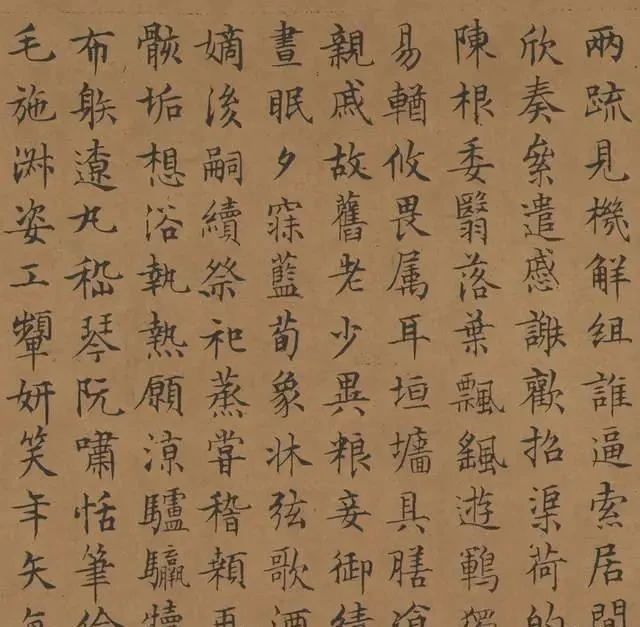 兩疏見機解組誰逼索居間
欣奏絫遣慼謝歡招渠荷的
陳根委翳落葉飄颻遊鵾獨
易輶攸畏属耳垣墻具膳飡
親戚故舊老少異粮妾御績
晝眠夕寐藍荀象牀弦歌酒
嫡後嗣續祭祀蒸嘗稽顙再
骸垢想浴執熱願涼驢驘犢
布䠶遼丸嵇琴阮嘯恬筆倫
毛施淑姿工顰妍笑年矢每